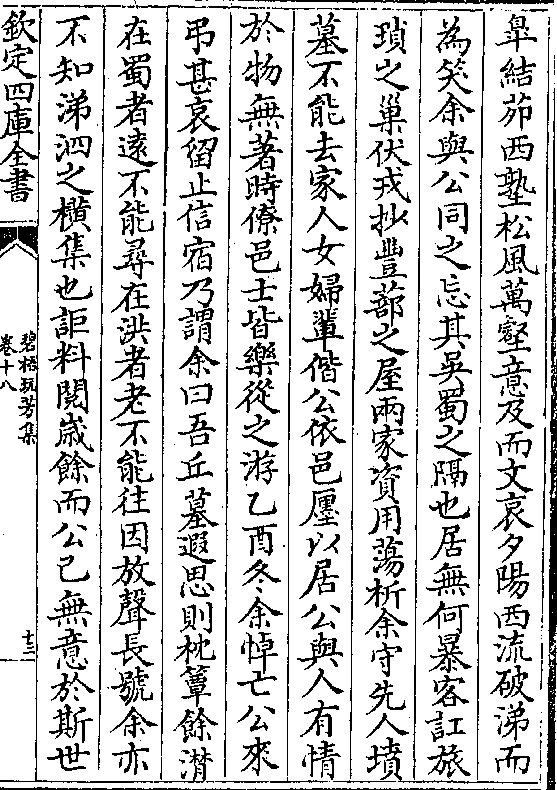 臯結茆西塾松風萬壑意及而文哀夕陽西流破涕而
為笑余與公同之忘其吳蜀之隔也居無何暴客訌旅
瑣之巢伏戎抄豐蔀之屋兩家資用蕩析余守先人墳
墓不能去家人女婦輩偕公依邑廛以居公與人有情
於物無著時僚邑士皆樂從之游乙酉冬余悼亡公來
弔甚哀留止信宿乃謂余曰吾丘墓遐思則枕簟餘潸
在蜀者遠不能尋在洪者老不能往因放聲長號余亦
不知涕泗之橫集也詎料閱歲餘而公已無意於斯世
欽定四庫全書
碧梧玩芳集
卷十八
十三